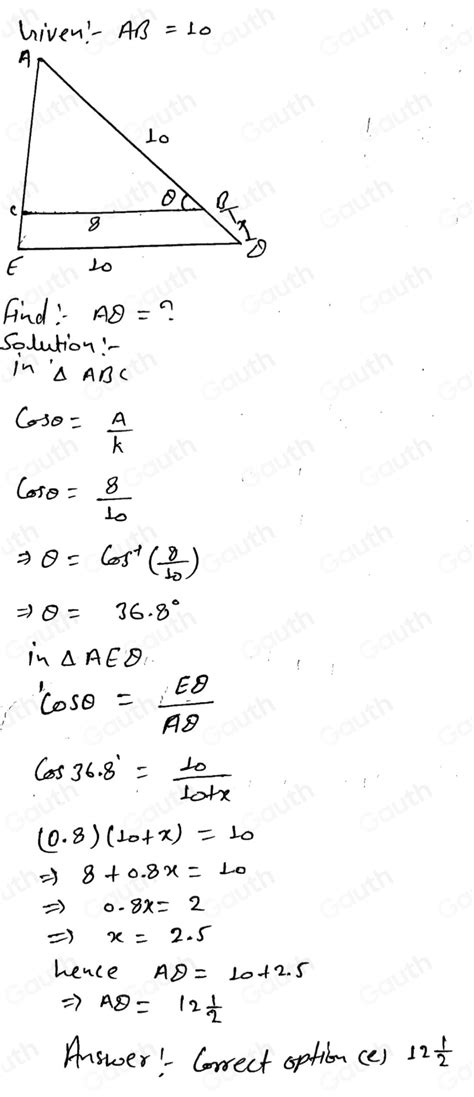 Given:- AB = 10
A
10
θ
B
C
8
x
E
10
D
find:- AD = ?
Solution:-
in Δ ABC
Cosθ = A/k
Cosθ = 8/10
⇒ θ = Cos⁻¹(8/10)
⇒ θ = 36.8°
in Δ AED
Cosθ = ED/AD
Cos 36.8° = 10/10+x
(0.8)(10+x) = 10
⇒ 8 + 0.8x = 10
⇒ 0.8x = 2
⇒ x = 2.5
hence AD = 10+2.5
⇒ AD = 12 1/2
Answer:- Correct option (e) 12 1/2